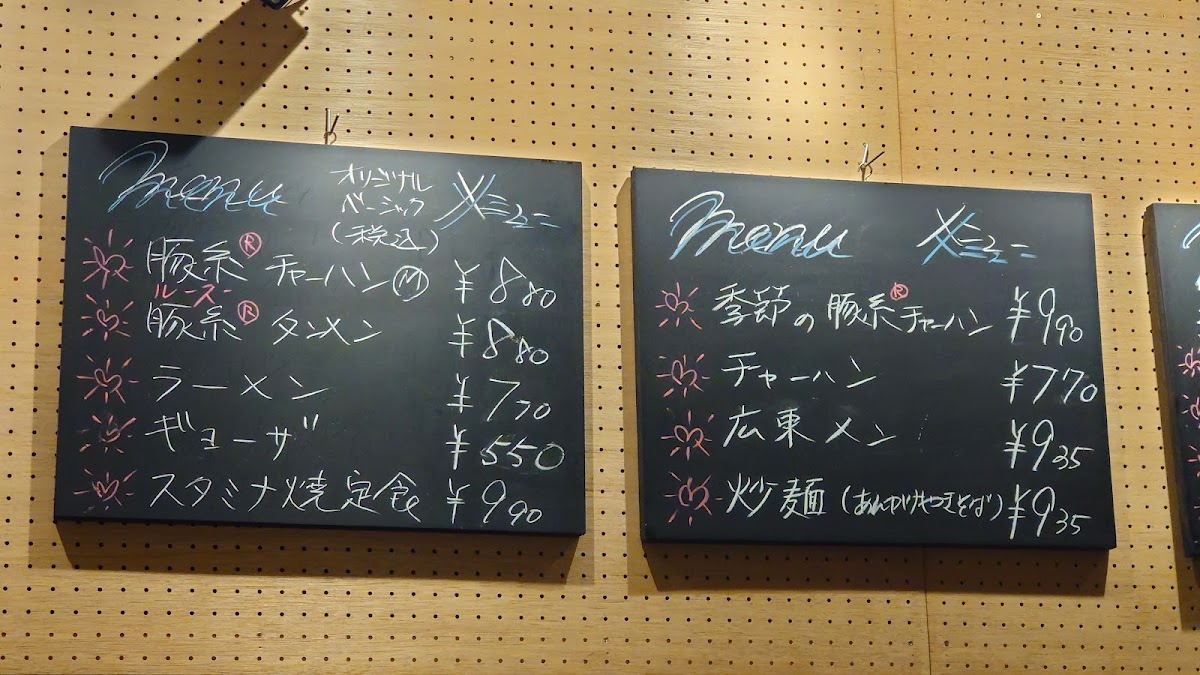 menu オリジナル ベーシック (税込) メニュー
豚糸® チャーハン Ⓜ ¥880
ルースー
豚糸® タンメン ¥880
ラーメン ¥770
ギョーザ ¥550
スタミナ焼定食 ¥990
menu メニュー
季節の豚糸®チャーハン ¥990
チャーハン ¥770
広東メン ¥935
炒麺(あんかけやきそば) ¥935